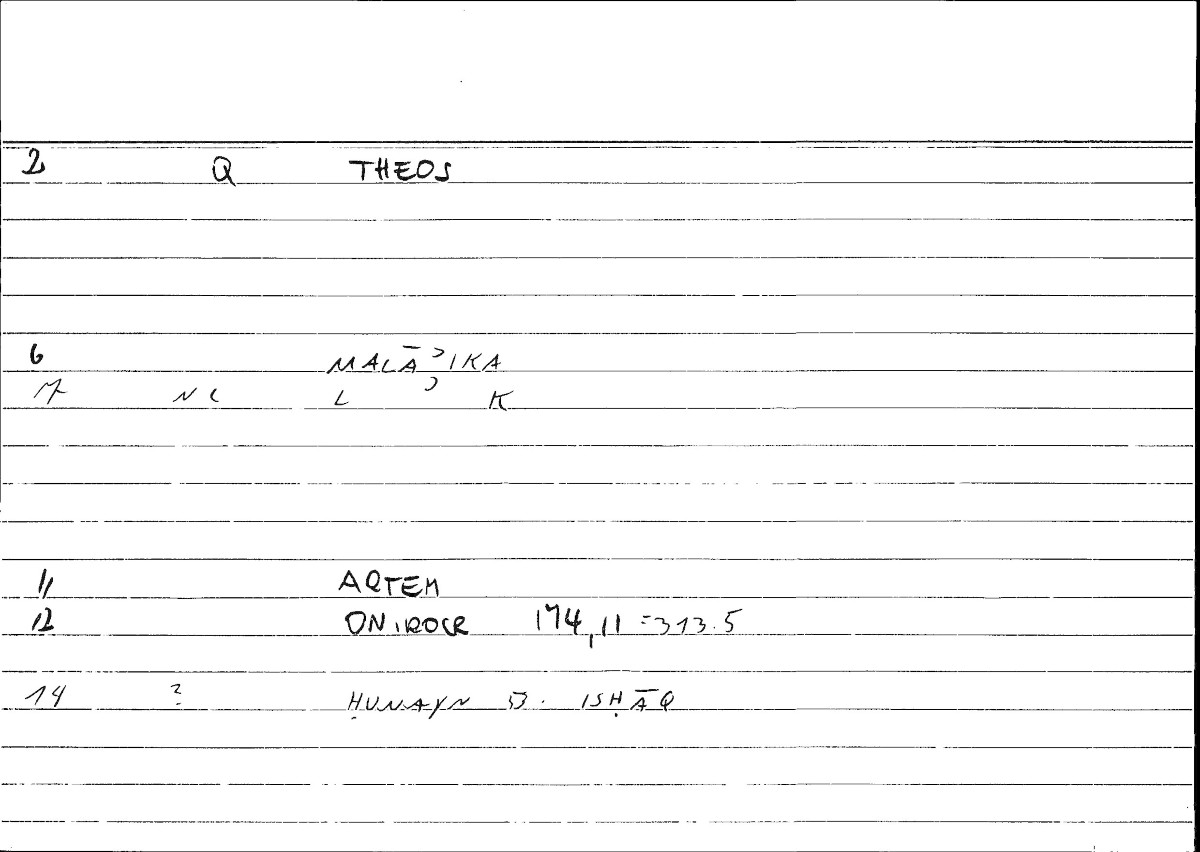 2 Q THEOS
6 MALĀʾIKA
M NC L ʾ K
11 ARTEM
12 ONIROCR 174,11 =313.5
14 ? ḤUNAYN B. ISḤĀQ